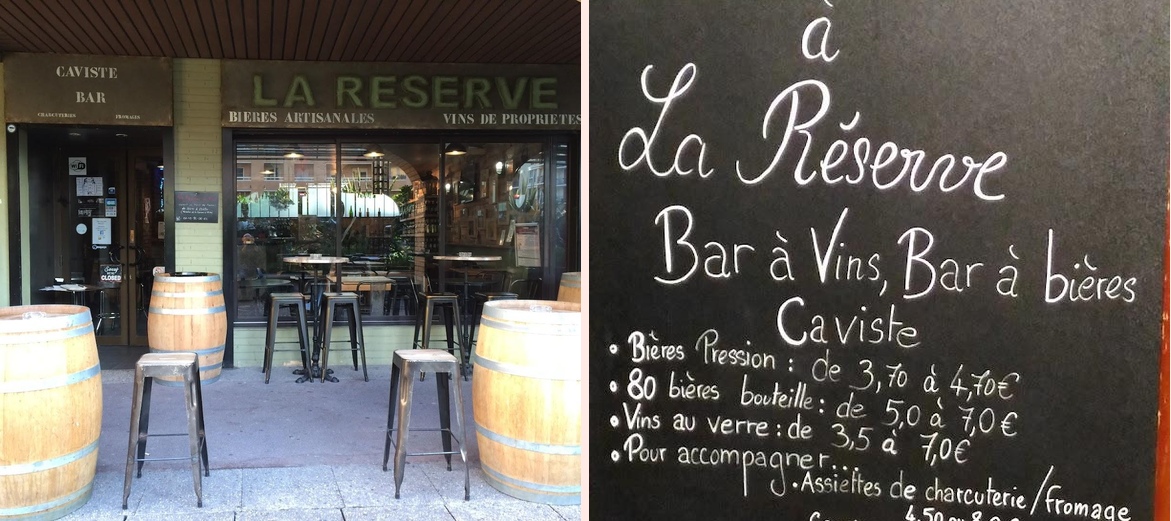 CAVISTE
BAR
CHARCUTERIES FROMAGES
LA RESERVE
BIERES ARTISANALES VINS DE PROPRIETES
WiFi
Sorry
CLOSED
à
La Réserve
Bar à Vins, Bar à bières
Caviste
• Bières Pression : de 3,70 à 4,70€
• 80 bières bouteille : de 5,0 à 7,0€
• Vins au verre : de 3,5 à 7,0€
• Pour accompagner...
• Assiettes de charcuterie / fromage